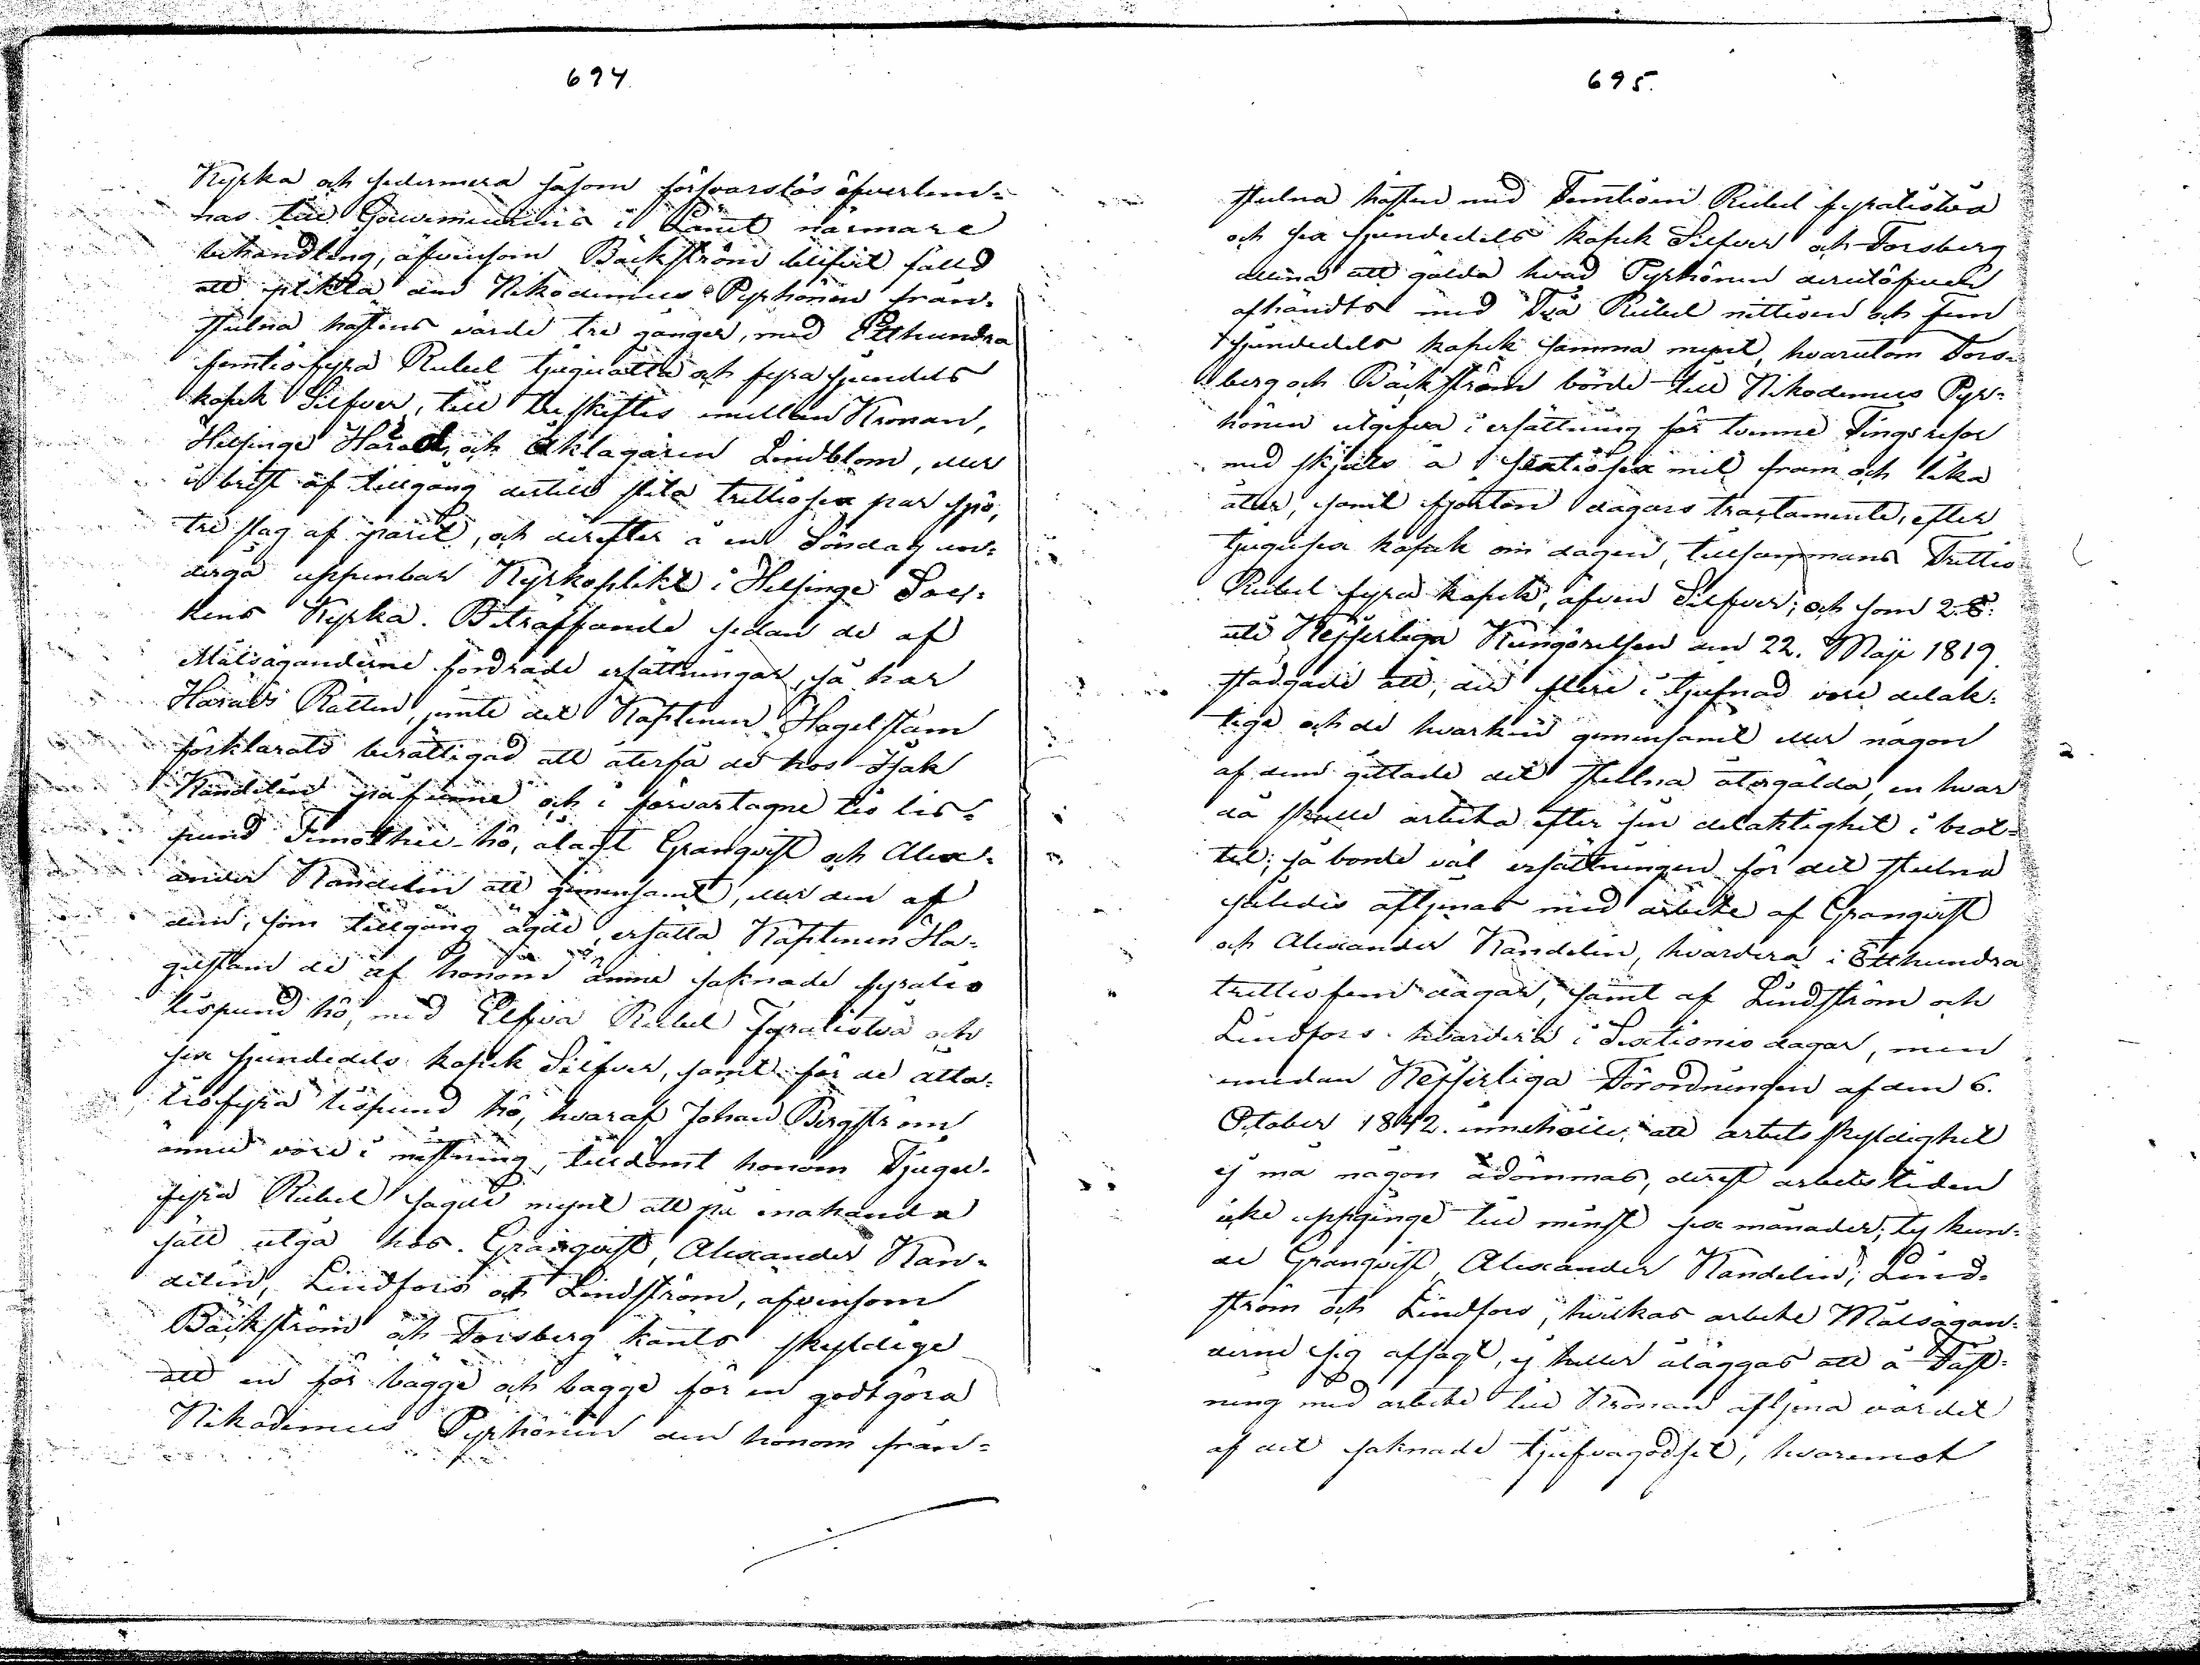 694.
Kyrka och sedermera såsom försvarslös öfverlem-
nas till Gouverneurens i Länet närmare
behandling, äfvensom Bäckström blifvit fälld
att plikta den Nikodemus Pyrhönen från-
stulna hästens värde tre gånger, med Etthundra
femtiofyra Rubel tjuguåtta och fyra sjundels
kopek Silfver, till treskiftes mellan Kronan,
Helsinge Härad, och Åklagaren Lindblom, eller
i brist af tillgång dertill slita trettiosex par spö,
tre slag af paret, och derefter å en Söndag un-
dergå uppenbar Kyrkoplikt i Helsinge Soc-
kens Kyrka. Beträffande sedan de af
Målsäganderne fordrade ersättningar, så har
Härads Rätten, jemte det Kaptenen Hagelstam
förklarats berättigad att återfå de hos Isak
Kandelin påfunne och i förvar tagne tio lis-
pund Timothei-hö, ålagt Granqvist och Alex-
ander Kandelin att gemensamt, eller den af
dem, som tillgång ägde, ersätta Kaptenen Ha-
gelstam de af honom ännu saknade fyratio
lispund hö, med Elfva Rubel fyratiotvå och
sex sjundedels kopek Silfver, samt för de åtta-
tiofyra lispund hö, hvaraf Johan Bergström
ännu vore i mistning, tilldömt honom Tjugu-
fyra Rubel sagde mynt att på enahanda
sätt utgå hos Granqvist, Alexander Kan-
delin, Lindfors och Lindström, äfvensom
Bäckström och Forsberg känts skyldige
att en för bägge och bägge för en godtgöra
Nikodemus Pyrhönen den honom från-
695.
stulna hästen med Femtioen Rubel fyratiotvå
och sex sjundedels kopek Silfver och Forsberg
allena att gälda hvad Pyrhönen derutöfver
afhändts med Två Rubel nittioen och fem
sjundedels kopek samma mynt, hvarutom Fors-
berg och Bäckström börde till Nikodemus Pyr-
hönen utgifva i ersättning för tvenne Tingsresor
med skjuts à sextiosex mil fram och lika
åter, samt fjorton dagars tractamente, efter
tjugusex kopek om dagen, tillsammans Trettio
Rubel fyra kopek, äfven Silfver; och som 2. §.
uti Kejserliga Kungörelsen den 22. Maji 1819.
stadgade att, der flere i tjufnad vore delak-
tige och de hvarken gemensamt eller någon
af dem gittade det stulna återgälda, en hvar
då skulle arbeta efter sin delaktighet i brot-
tet; så borde väl ersättningen för det stulna
således aftjenas med arbete af Granqvist
och Alexander Kandelin, hvardera i Etthundra
trettiofem dagar, samt af Lindström och
Lindfors hvardera i Sextionio dagar, men
emedan Kejserliga Förordningen af den 6.
October 1842. innehölle, att arbetsskyldighet
ej må någon ådömmas, derest arbetstiden
icke uppginge till minst sex månader; ty kun-
de Granqvist, Alexander Kandelin, Lind-
ström och Lindfors, hvilkas arbete Målsägan-
derne sig afsagt, ej heller åläggas att å Fäst-
ning med arbete till Kronan aftjena värdet
af det saknade tjufvagodset, hvaremot